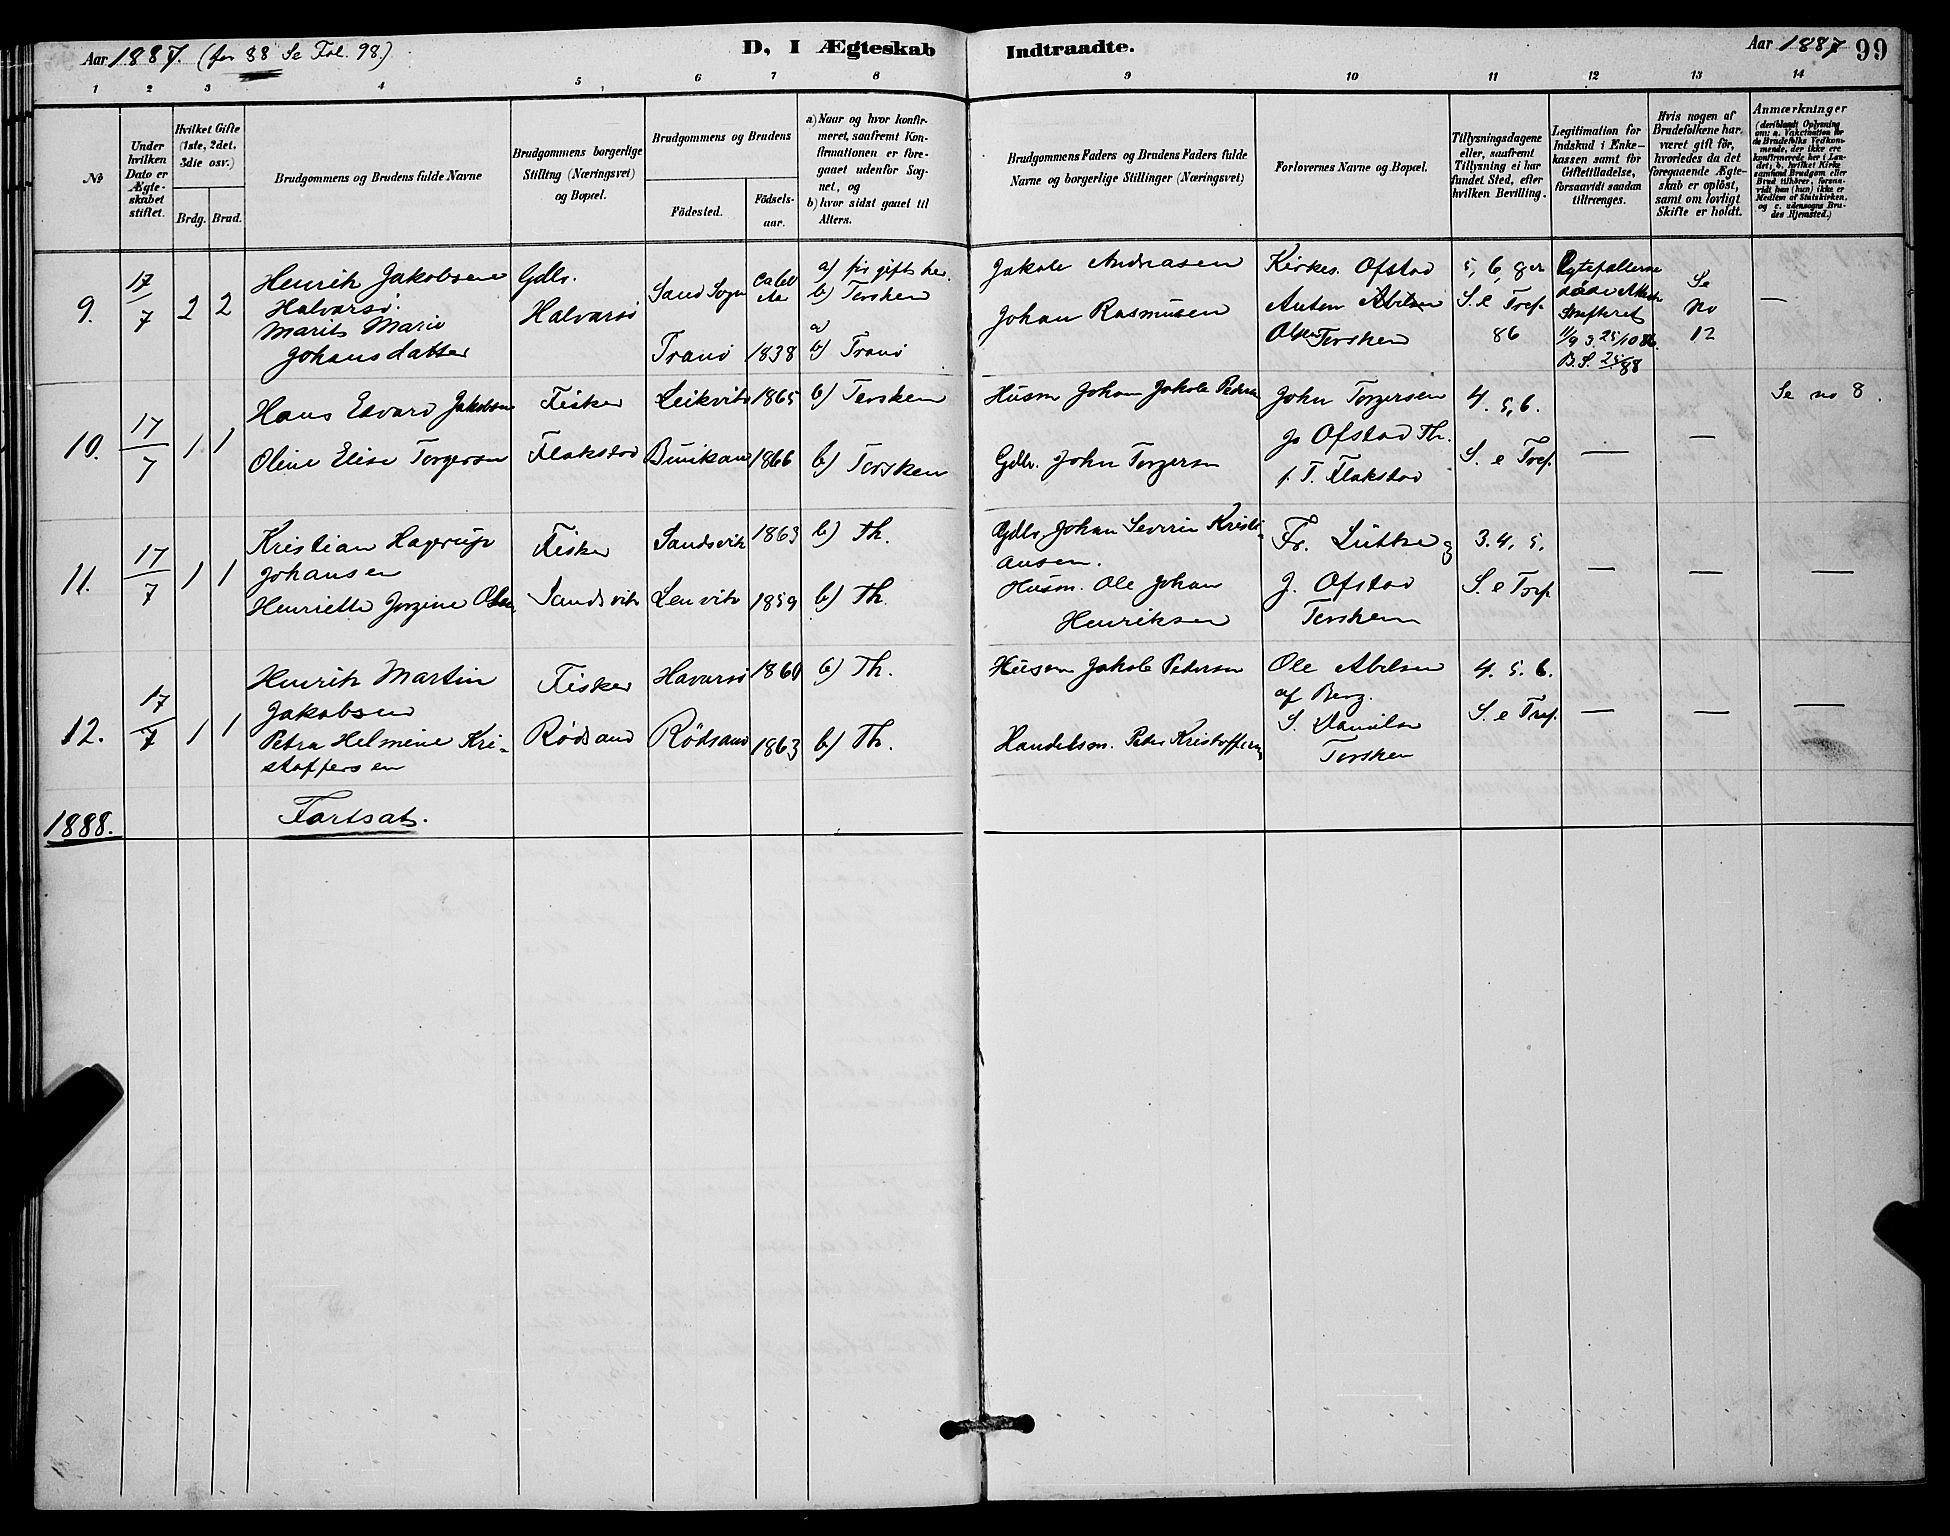 Aar 1887. (for 88 Se Fol. 98.)
D, I Ægteskab Indtraadte.
Aar 1887 99
1 2 3 4 5 6 7 8 9 10 11 12 13 14
No
Under hvilken Dato er Ægteskabet stiftet.
Hvilket Gifte (1ste, 2det, 3die osv.)
Brdg. Brud.
Brudgommens og Brudens fulde Navne
Brudgommens borgerlige Stilling (Næringsvei) og Bopæl.
Brudgommens og Brudens
Fødested. Fødselsaar.
a) Naar og hvor konfirmeret, saafremt Konfirmationen er foregaaet udenfor Sognet, og
b) hvor sidst gaaet til Alters.
Brudgommens Faders og Brudens Faders fulde Navne og borgerlige Stillinger (Næringsvei)
Forlovernes Navne og Bopæl.
Tillysningsdagene eller, saafremt Tillysning ei har fundet Sted, efter hvilken Bevilling.
Legitimation for Indskud i Enkekassen samt for Giftetilladelse, forsaavidt saadan tiltrænges.
Hvis nogen af Brudefolkene har været gift før, hvorledes da det foregaaende Ægteskab er opløst, samt om lovligt Skifte er holdt.
Anmærkninger (deriblandt Oplysning om: a. Vakcination for de Brudefolks Vedkommende, der ikke ere konfirmerede her i Landet; b. hvilket Kirkesamfund Brudgom eller Brud tilhører, forsaavidt han (hun) ikke er Medlem af Statskirken, og c. udensogns Brudes Hjemsted.)
9. 17/7 2 2
Henrik Jakobsen
Halvarsö.
Marit Marie
Johansdatter
Gdbr.
Halvarsö
Sand Sogn
Tranö 1838
a) før gift her.
b) Torsken
a)
b) Tranö
Jakob Andreasen
Johan Rasmusen
Kirkes. Ofstad
Anton Abelsen
Olsen Torsken
5, 6, 8
S. e Tref.
86
Ægtefællerne
døde
Skifteret
B.S. 25/88
Se
No
12
—
10. 17/7 1 1
Hans Edvard Jakobsen
Oline Elise Torgersen
Fisker
Flakstad
Leikvik 1865
Bunkan 1866
b) Torsken
b) Torsken
Husm Johan Jakob Pedersen
Gdbr. John Torgersen
John Torgersen
J. Ofstad Th.
f. T. Flakstad
4. 5, 6.
S. e Tref.
—
—
Se no 8.
11. 17/7 1 1
Kristian Hagerup
Johansen
Henriette Jorgine Olsen
Fisker
Sandsvik
Sandsvik 1863
Lenvik 1859
b) Th.
b) Th.
Gdbr. Johan Severin Kristi-
ansen.
Husm. Ole Johan
Henriksen
Fr. Lütke og
J. Ofstad
Torsken
3. 4, 5.
S. e Tref.
—
—
—
12. 17/7 1 1
Henrik Martin
Jakobsen
Petra Helmine Kri-
stoffersen
Fisker
Rödsand
Havarsö 1860
Rödsand 1863
b) Th.
b) Th.
Husm Jakob Pedersen
Handelsm. Peter Kristoffersen
Ole Abelsen
af Berg.
S. Danielsen
Torsken
4. 5. 6.
S. e Tref.
—
—
—
1888. Fortsat.